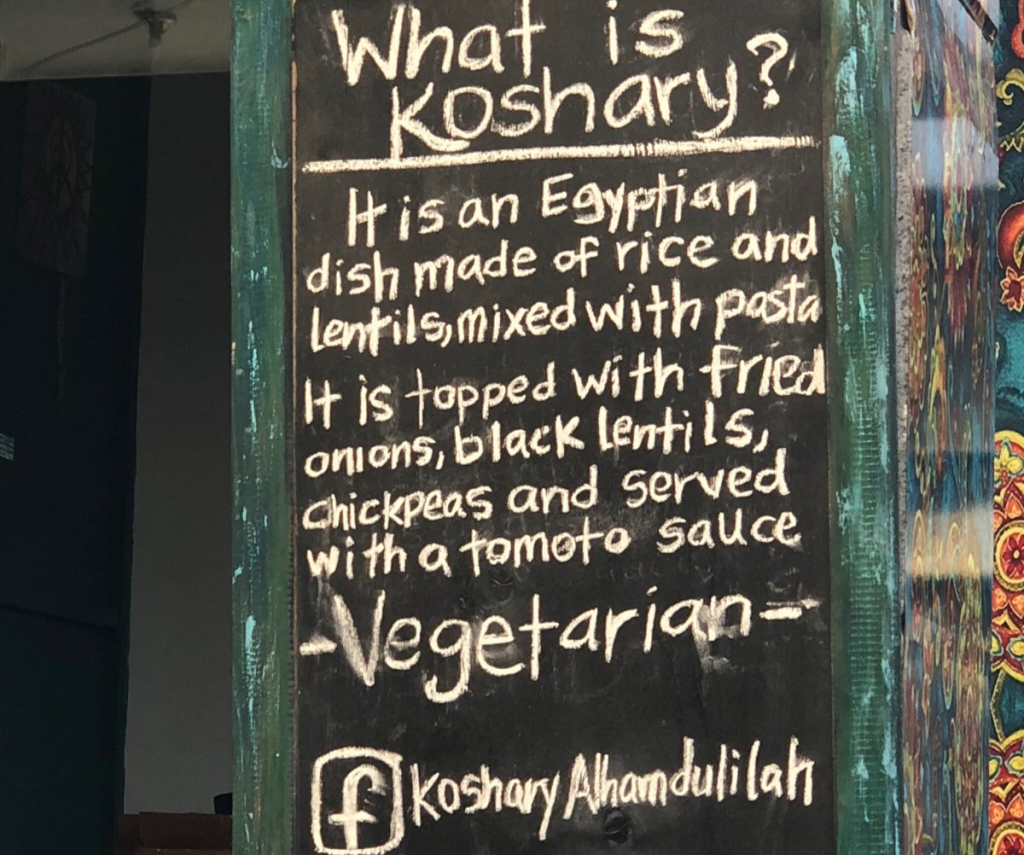 What is
Koshary?
It is an Egyptian
dish made of rice and
lentils, mixed with pasta
It is topped with fried
onions, black lentils,
chickpeas and served
with a tomoto sauce
-Vegetarian-
f Koshary Alhamdulilah